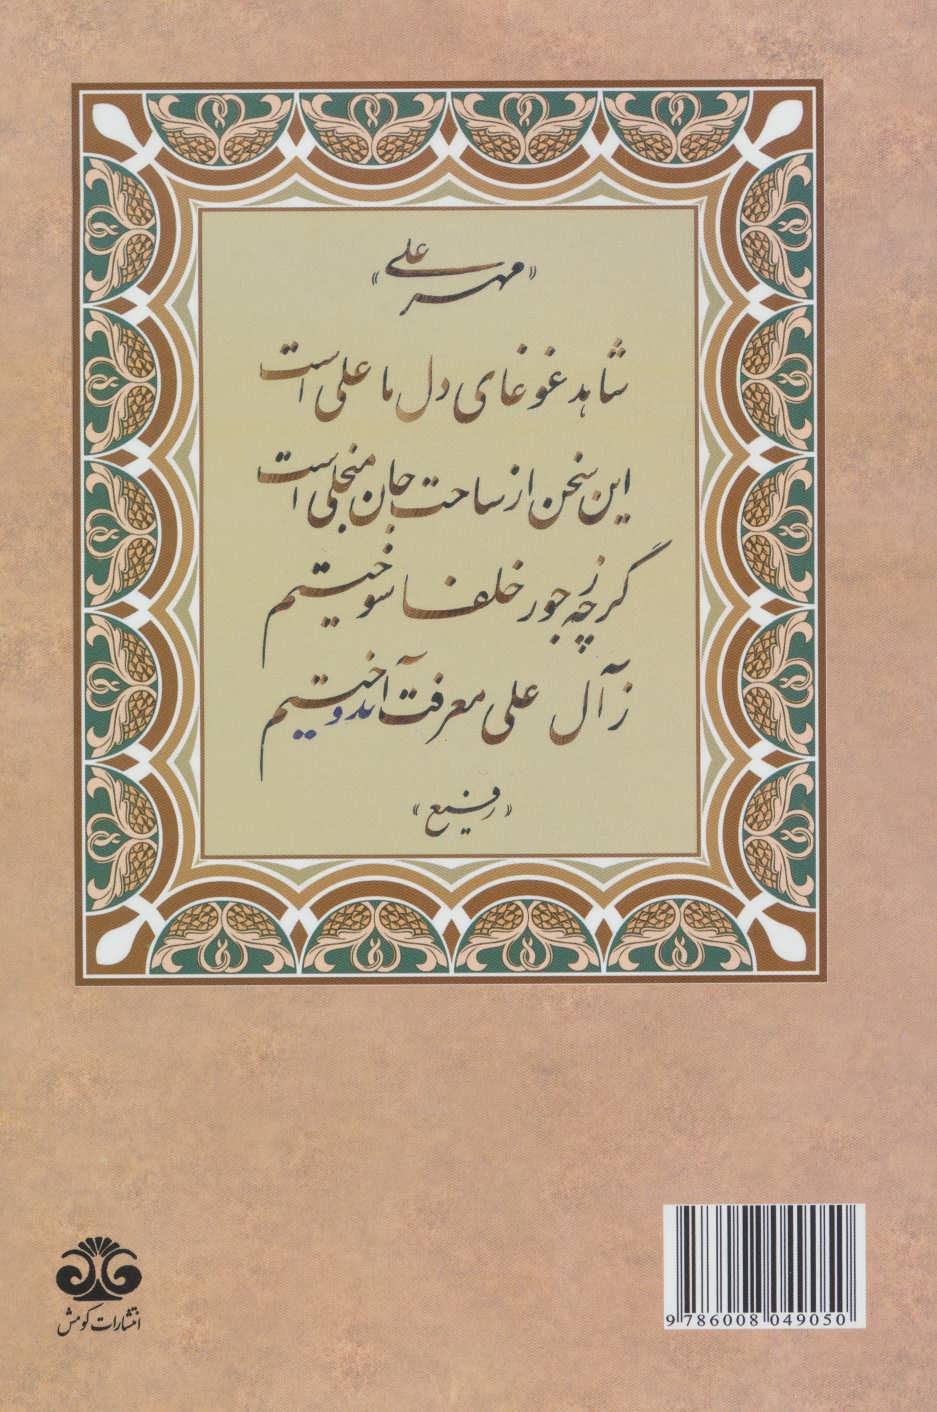 «مهر علی»
شاهد غوغای دل ما علی است
این سخن از ساحت جان منجلی است
گرچه ز جور خلفا سوختیم
ز آل علی معرفت آندوختیم
«رفیع»
انتشارات کومش
9 786008 049050